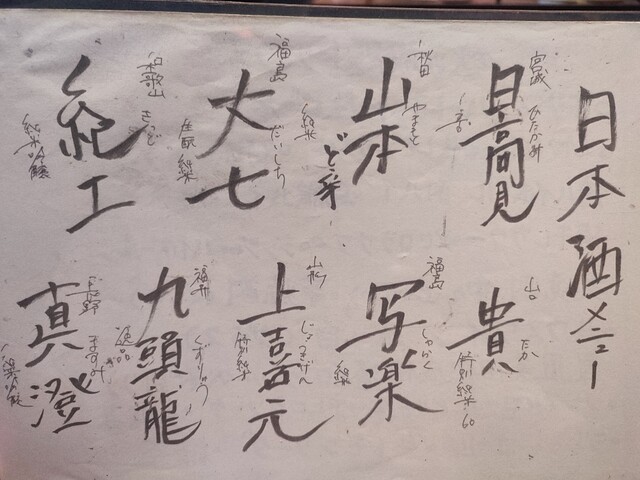 日本酒メニュー
宮城
日高見
ひたかみ
秋田
山本
やまもと
純米
ど辛
福島
大七
だいしち
生酛 純米
和歌山
紀土
きっど
純米吟醸
山口
貴
たか
特別純米・60
福島
写楽
しゃらく
純米
山形
上喜元
じょうきげん
特別純米
福井
九頭龍
くずりゅう
逸品
長野
真澄
ますみ